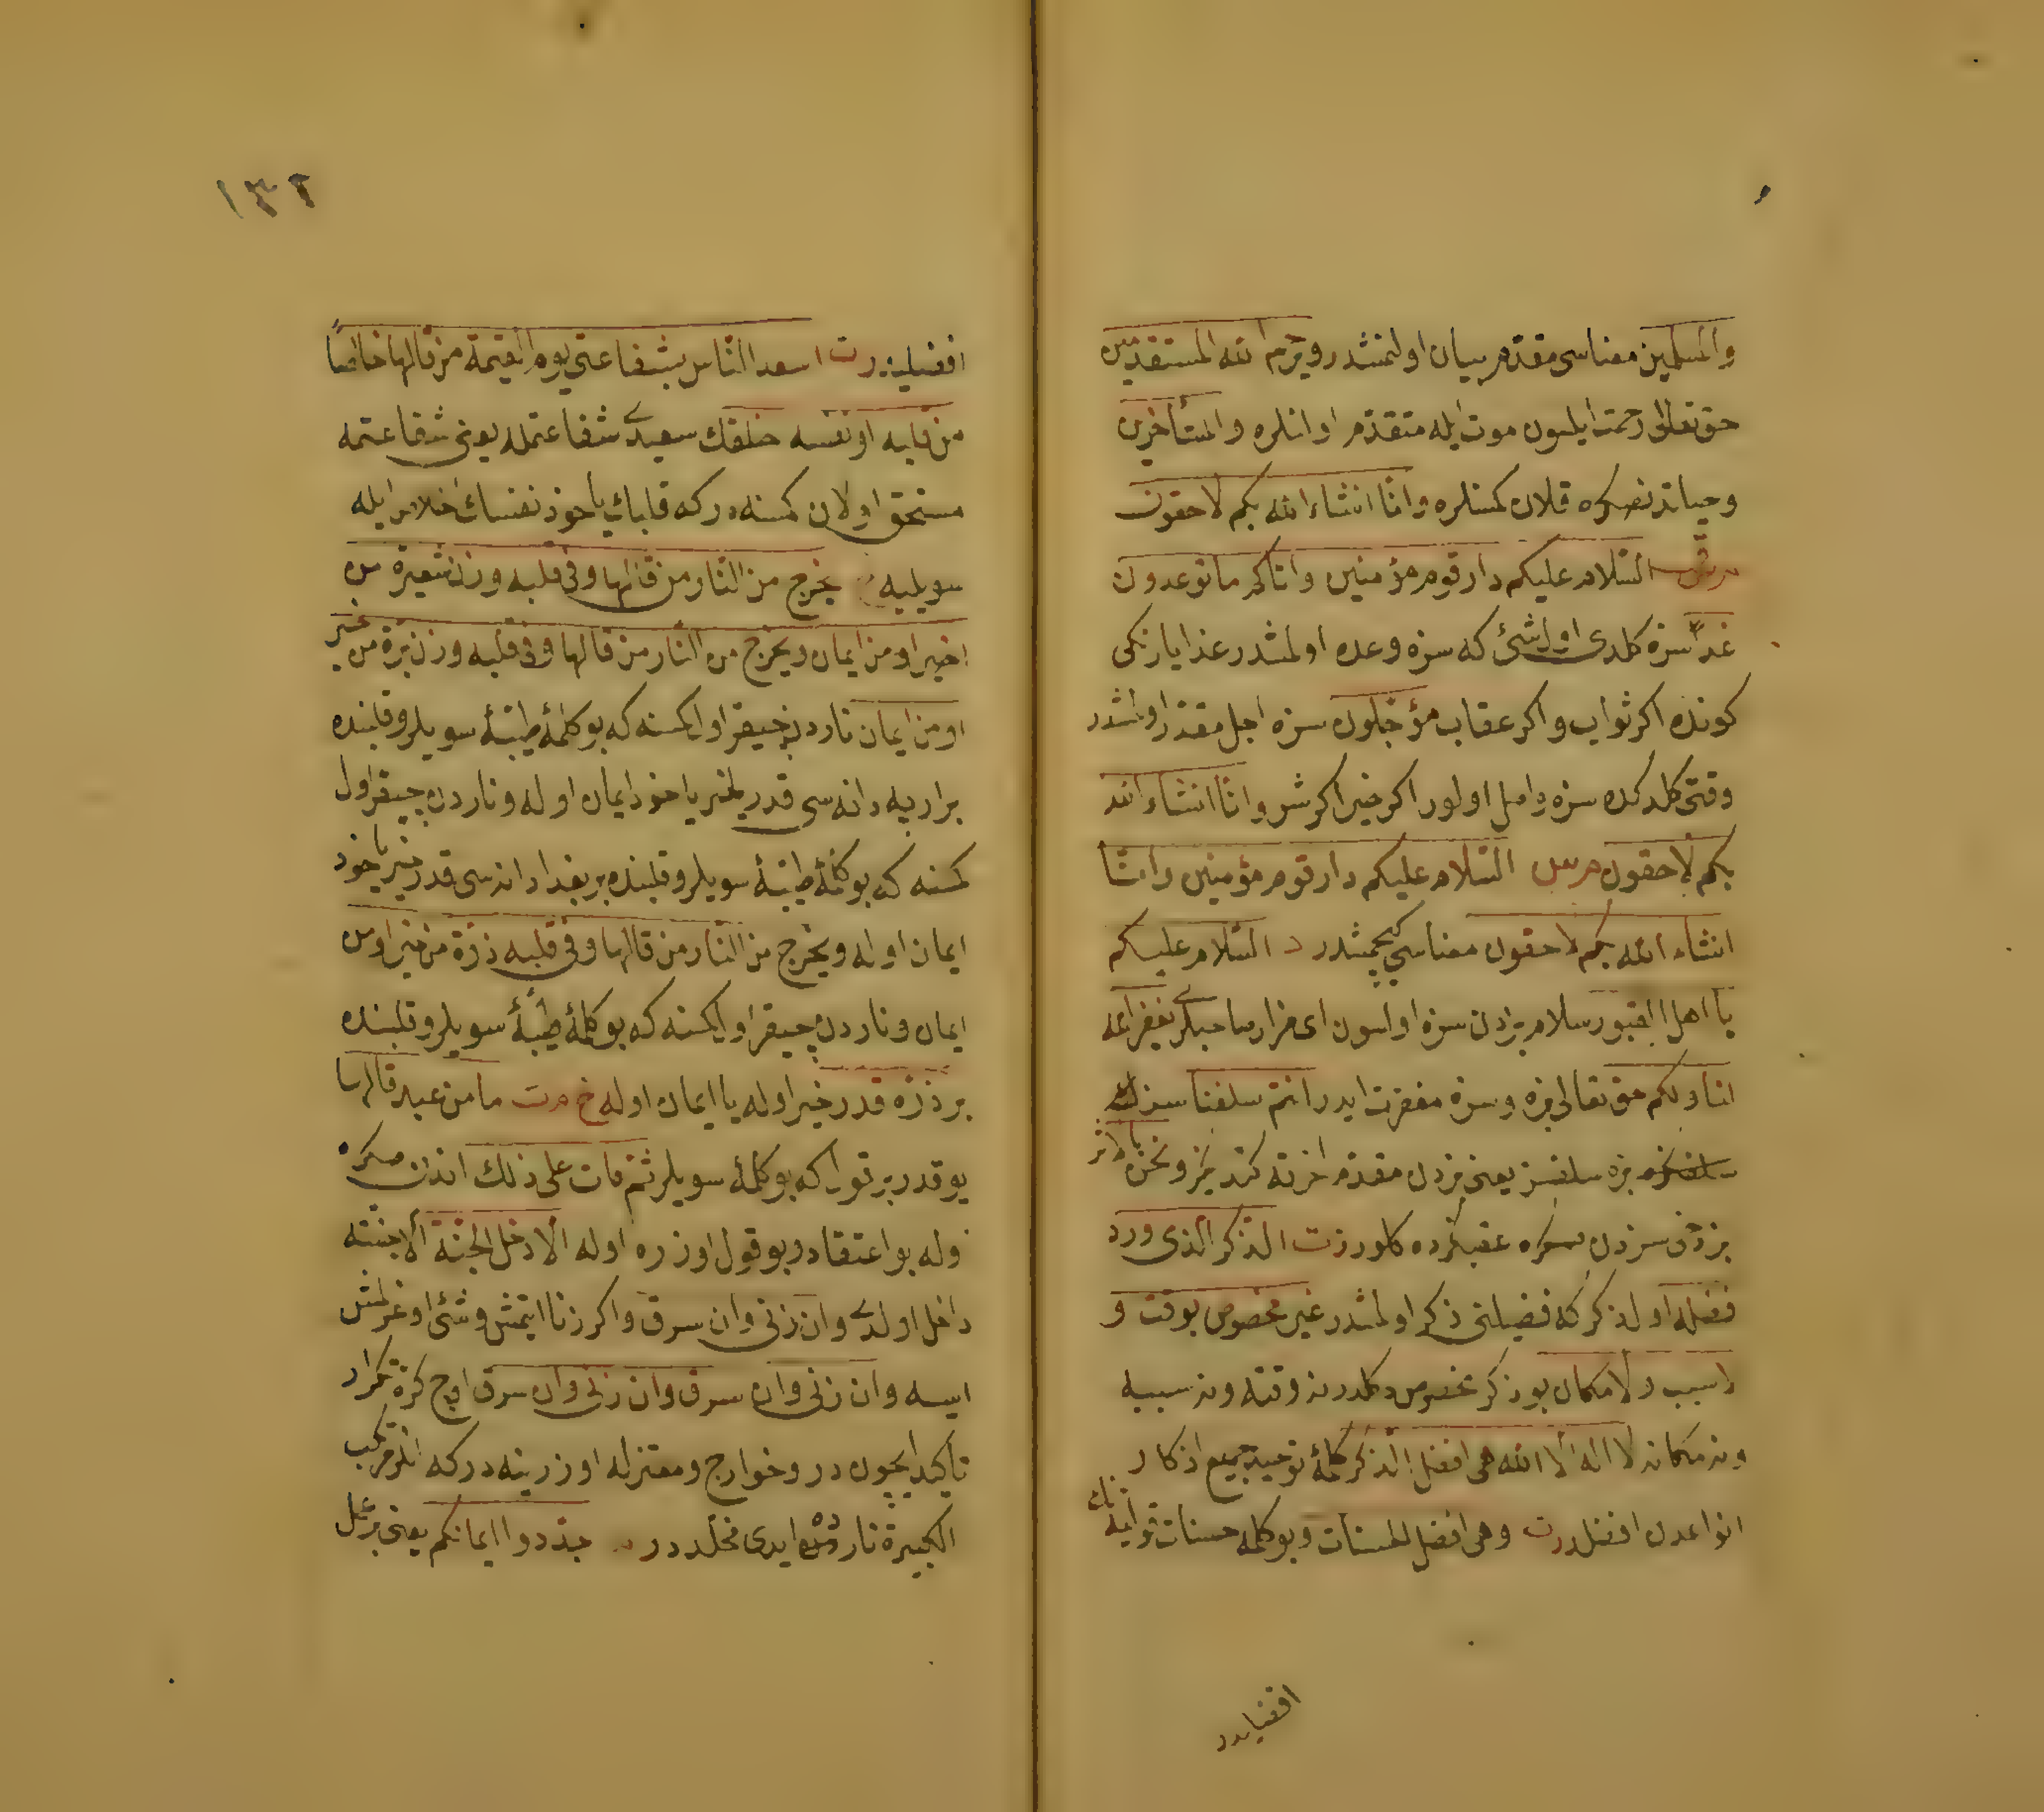 والمسلمین معناسی مقدم بیان اولنمشدر ویرحم الله المستقدمین
حق تعالی رحمت ایلسون موت ایله متقدم اولنلره والمستأخرین
وحیاتده نصکره قلان کمسنلره وانا انشاء الله بکم لاحقون
م س ق السلام علیکم دار قوم مؤمنین واتاکم ما توعدون
غدا سزه کلدی اول شئ که سزه وعده اولمشدر غدا یارنکی
کونده اکر ثواب واکر عقاب مؤجلون سزه اجل مقدر اولمشدر
وقتی کلدکده سزه واصل اولور اکر خیر اکر شر وانا انشاء الله
بکم لاحقون م س السلام علیکم دار قوم مؤمنین وانا
انشاء الله بکم لاحقون معناسی کچمشدر د السلام علیکم
یا اهل القبور سلام بزدن سزه اولسون ای مزار صاحبلری یغفر الله
لنا ولکم حق تعالی بزه وسزه مغفرت ایدر انتم سلفنا سزلر
بزه سلفسز یعنی بزدن مقدم اخرته کتدیکز ونحن بالاثر
بز دخی سزدن صکره عقبکزده کلورز ت الذکر الذی ورد
فضله اول ذکر که فضیلتی ذکر اولمشدر غیر مخصوص بوقت و
لا سبب ولا مکان بو ذکر مخصوص دکلدر نه وقته ونه سببه
ونه مکانه لا اله الا الله هی افضل الذکر کلمۀ توحید جمیع اذکار
انواعدن افضلدر ت وهی افضل الحسنات وبو کلمه حسنات ثوابنک
افضلیدر
١٣٢
افضلیدر ت اسعد الناس بشفاعتی یوم القیمة من قالها خالصا
من قلبه او نفسه خلقک سعیدی شفاعتمله یعنی شفاعتمه
مستحق اولان کمسنه در که قلبك یاخود نفسك اخلاص ایله
سویلیه خ یخرج من النار من قالها وفی قلبه وزن شعیرة من
خیر او من ایمان ویخرج من النار من قالها وفی قلبه وزن برة من خیر
او من ایمان ناردن چیقر اول کمسنه که بو کلمۀ طیبۀ سویلر وقلبنده
بر ارپه دانه سی قدر خیر یاخود ایمان اوله وناردن چیقر اول
کمسنه که بو کلمۀ طیبۀ سویلر وقلبنده بر بغدای دانه سی قدر خیر یاخود
ایمان اوله ویخرج من النار من قالها وفی قلبه ذرة من خیر او من
ایمان وناردن چیقر اول کمسنه که بو کلمۀ طیبۀ سویلر وقلبنده
بر ذره قدر خیر اوله یا ایمان اوله خ م ت ما من عبد قالها
یوقدر بر قول که بو کلمۀ سویلر ثم مات علی ذلك اندن صکره
وله بو اعتقاد وبو قول اوزره اوله الا دخل الجنة الا جنته
داخل اولدی وان زنی وان سرق واکر زنا ایتمش وشئ اوغرلمش
ایسه وان زنی وان سرق وان زنی وان سرق اوچ کره تکرار
تأکید ایچون در وخوارج ومعتزله اوزرینه در که انلر مرتکب
الکبیرة نارده ایدی مخلددر جددوا ایمانکم یعنی بر عمل